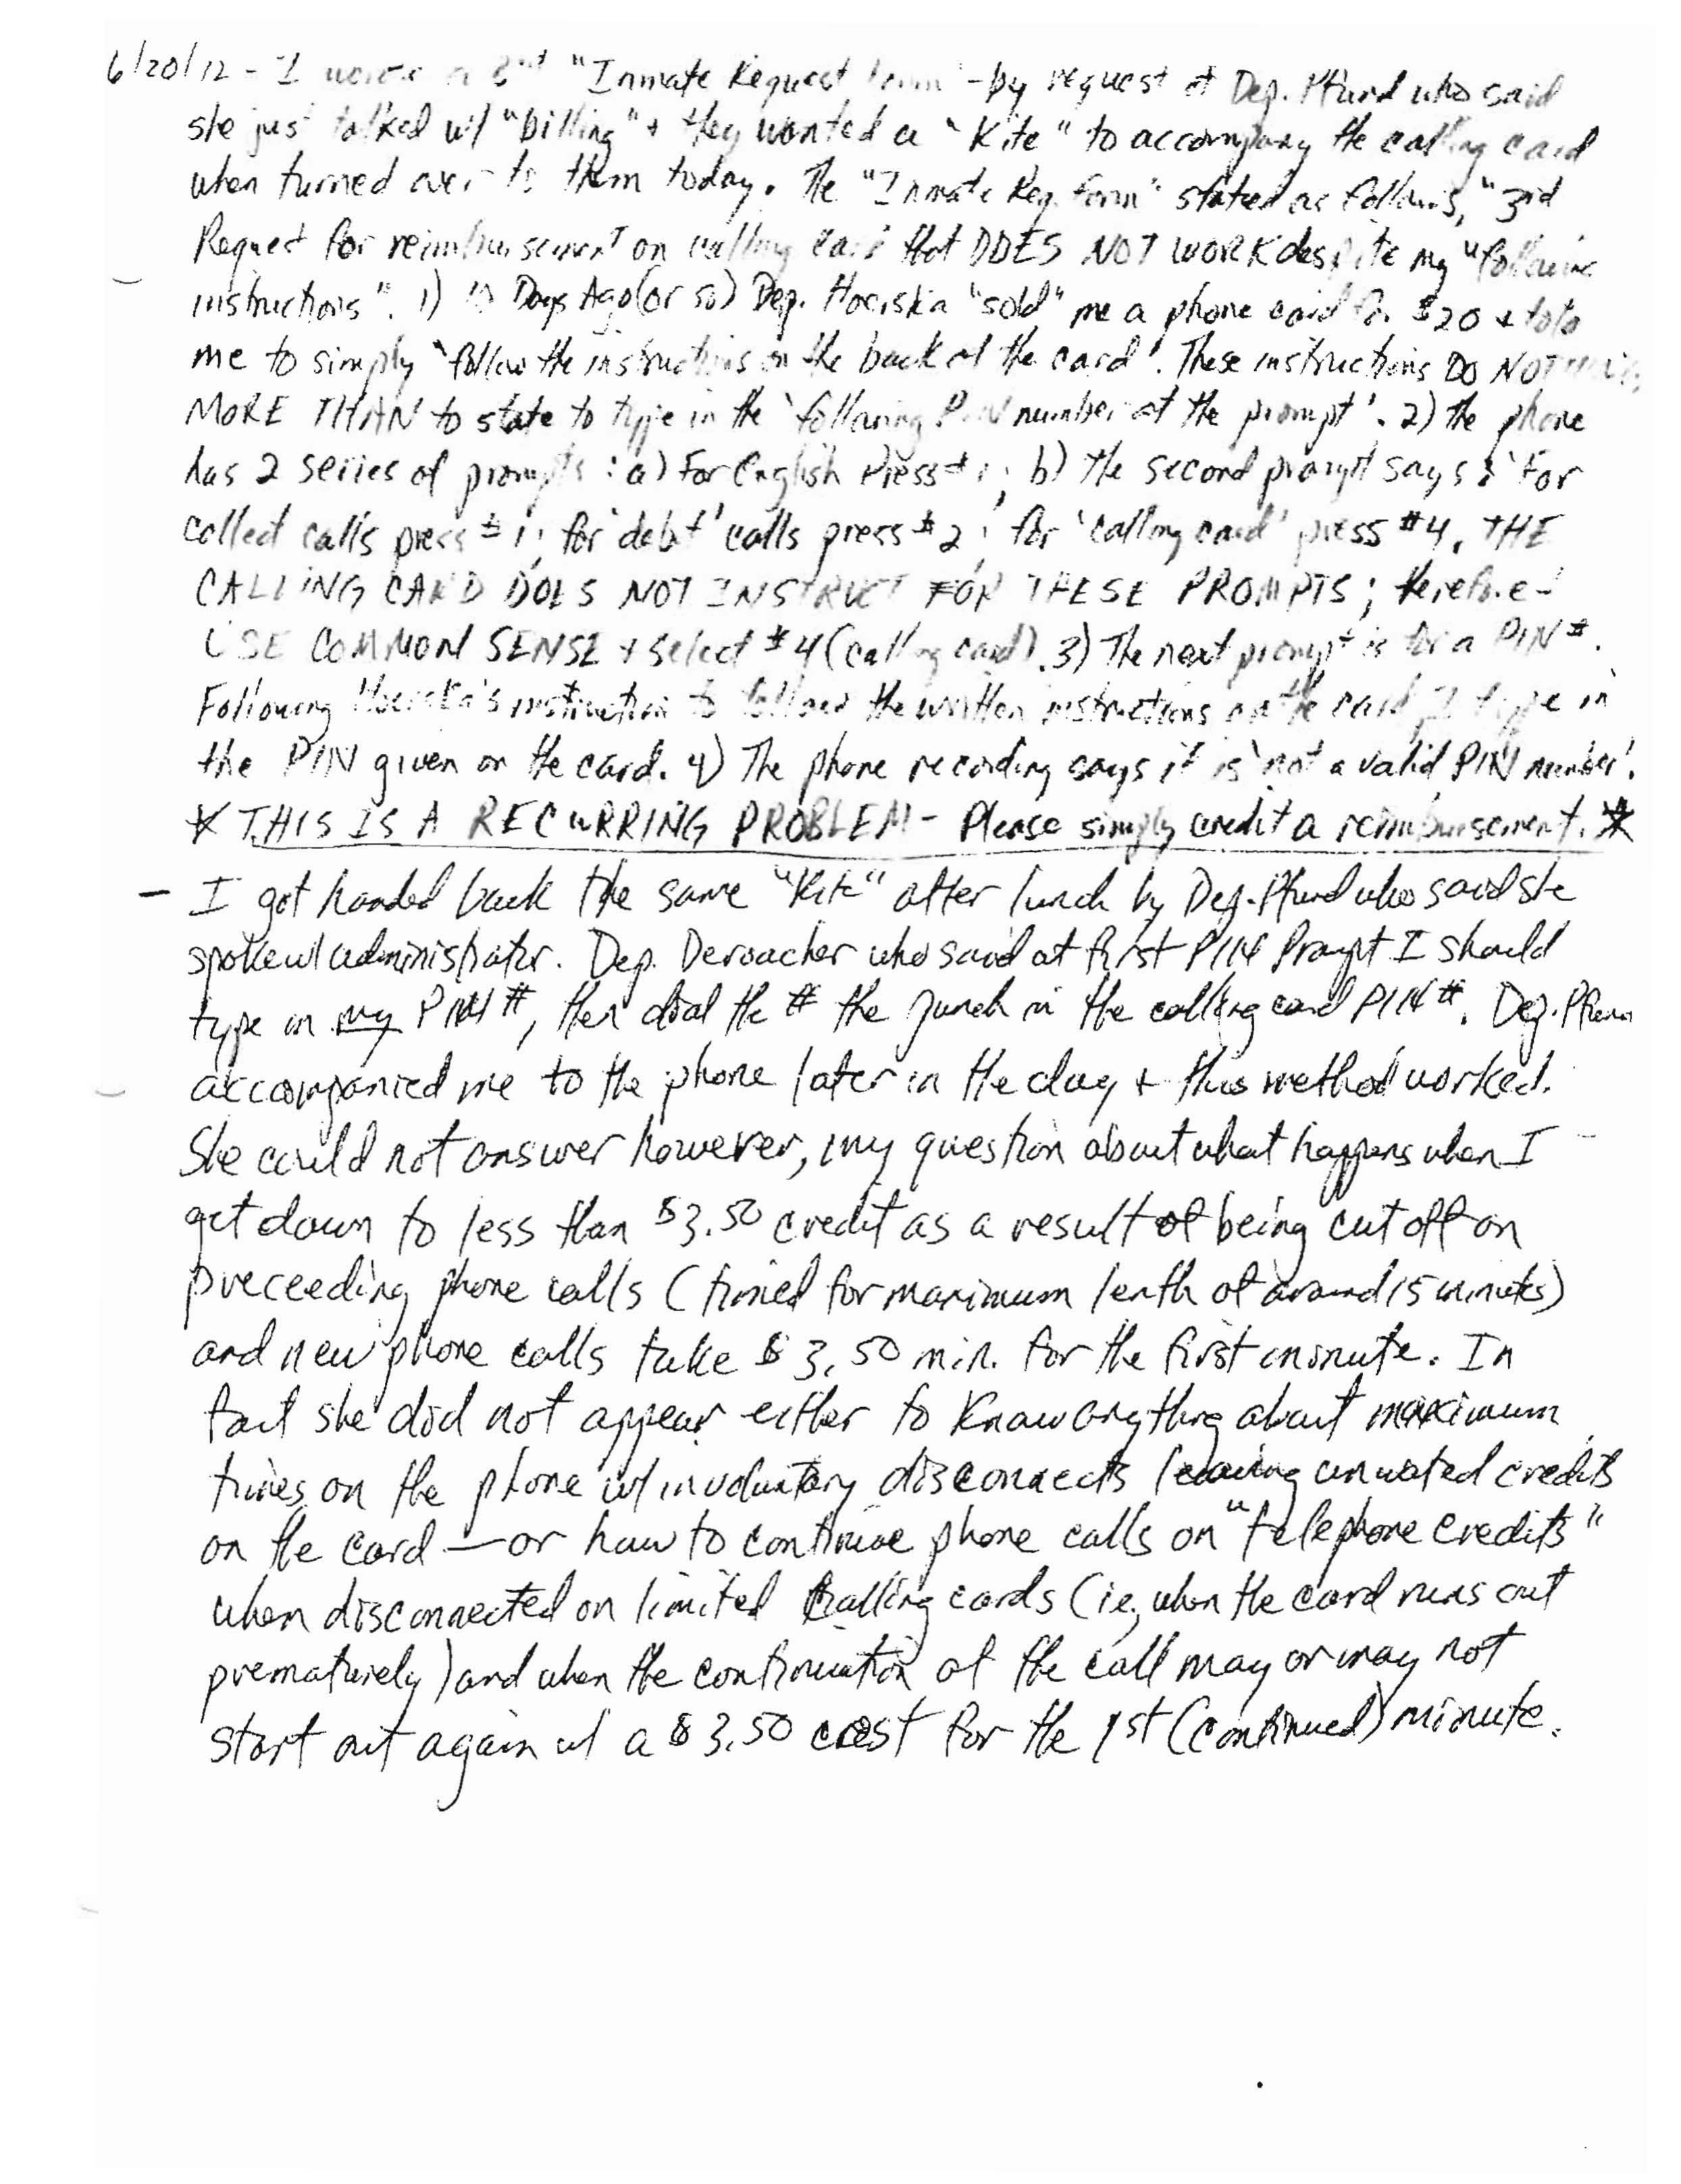 6/20/12 - I a "Inmate Request - by request of Dep. Pfund who said
she just talked w/ "billing" + they wanted a "Kite" to accompany the calling card
when turned over to them today. The "Inmate Req. form" stated as follows, "3rd
Request for reimbursement on calling card that DOES NOT WORK despite my "following
instructions". 1) 10 Days Ago (or so) Dep. Hociska "sold" me a phone card for $20 + told
me to simply 'follow the instructions on the back of the card'. These instructions DO NOTHING
MORE THAN to state to type in the 'following PIN number at the prompt'. 2) the phone
has 2 series of prompts: a) For English Press #1; b) the second prompt says: 'For
collect calls press #1; for 'debt' calls press #2; for 'calling card' press #4. THE
CALLING CARD DOES NOT INSTRUCT FOR THESE PROMPTS; therefore -
USE COMMON SENSE + select #4 (calling card). 3) The next prompt is for a PIN #.
Following Hociska's instruction to follow the written instructions on the card I type in
the PIN given on the card. 4) The phone recording says it is 'not a valid PIN number'.
* THIS IS A RECURRING PROBLEM - Please simply credit a reimbursement. *
- I got handed back the same "Kite" after lunch by Dep. Pfund who said she
spoke w/ administrator. Dep. Deroacher who said at first PIN Prompt I should
type in my PIN #, then dial the # the punch in the calling card PIN #. Dep. Pfund
accompanied me to the phone later in the day + this method worked.
She could not answer however, my question about what happens when I
get down to less than $3.50 credit as a result of being cut off on
preceeding phone calls (timed for maximum lenth of around 15 minutes)
and new phone calls take $3.50 min. for the first minute. In
fact she did not appear either to know anything about maximum
times on the phone w/ involuntary disconnects leaving unwated credits
on the card — or how to continue phone calls on "telephone credits"
when disconnected on limited calling cards (ie, when the card runs out
prematurely) and when the continuation of the call may or may not
start out again w/ a $3.50 cost for the 1st (continued) minute.